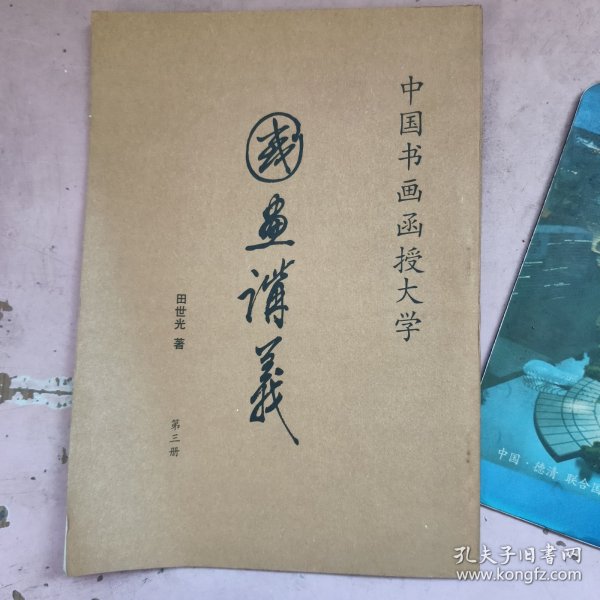 中国书画函授大学
國畫講義
田世光 著
第三册
中国·德清 联合国
孔夫子旧书网
www.kongfz.com